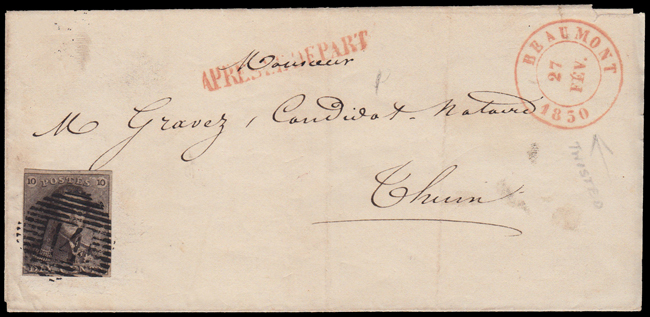 APRES LE DEPART
Monsieur
BEAUMONT
27
FÉV.
1850
M Gravez, Candidat-Notaire
Thuin
TWISTED
10 POSTES 10